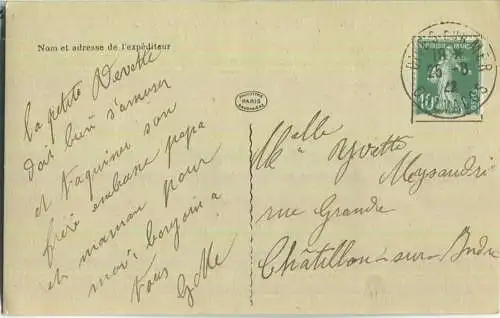 Nom et adresse de l'expéditeur
La petite Devette
doit bien s'amuser
et taquiner son
frère embrasse papa
et maman pour
moi bonjour à
tous
PARIS
REPUBLIQUE FRANC
10c
Melle Yvette
Meysandri
rue Grande
Châtillon-sur-Indre